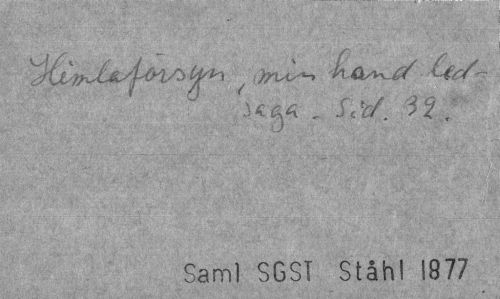 Himlaförsyn, min hand led-
saga - Sid. 32.
Saml SGST Ståhl 1877